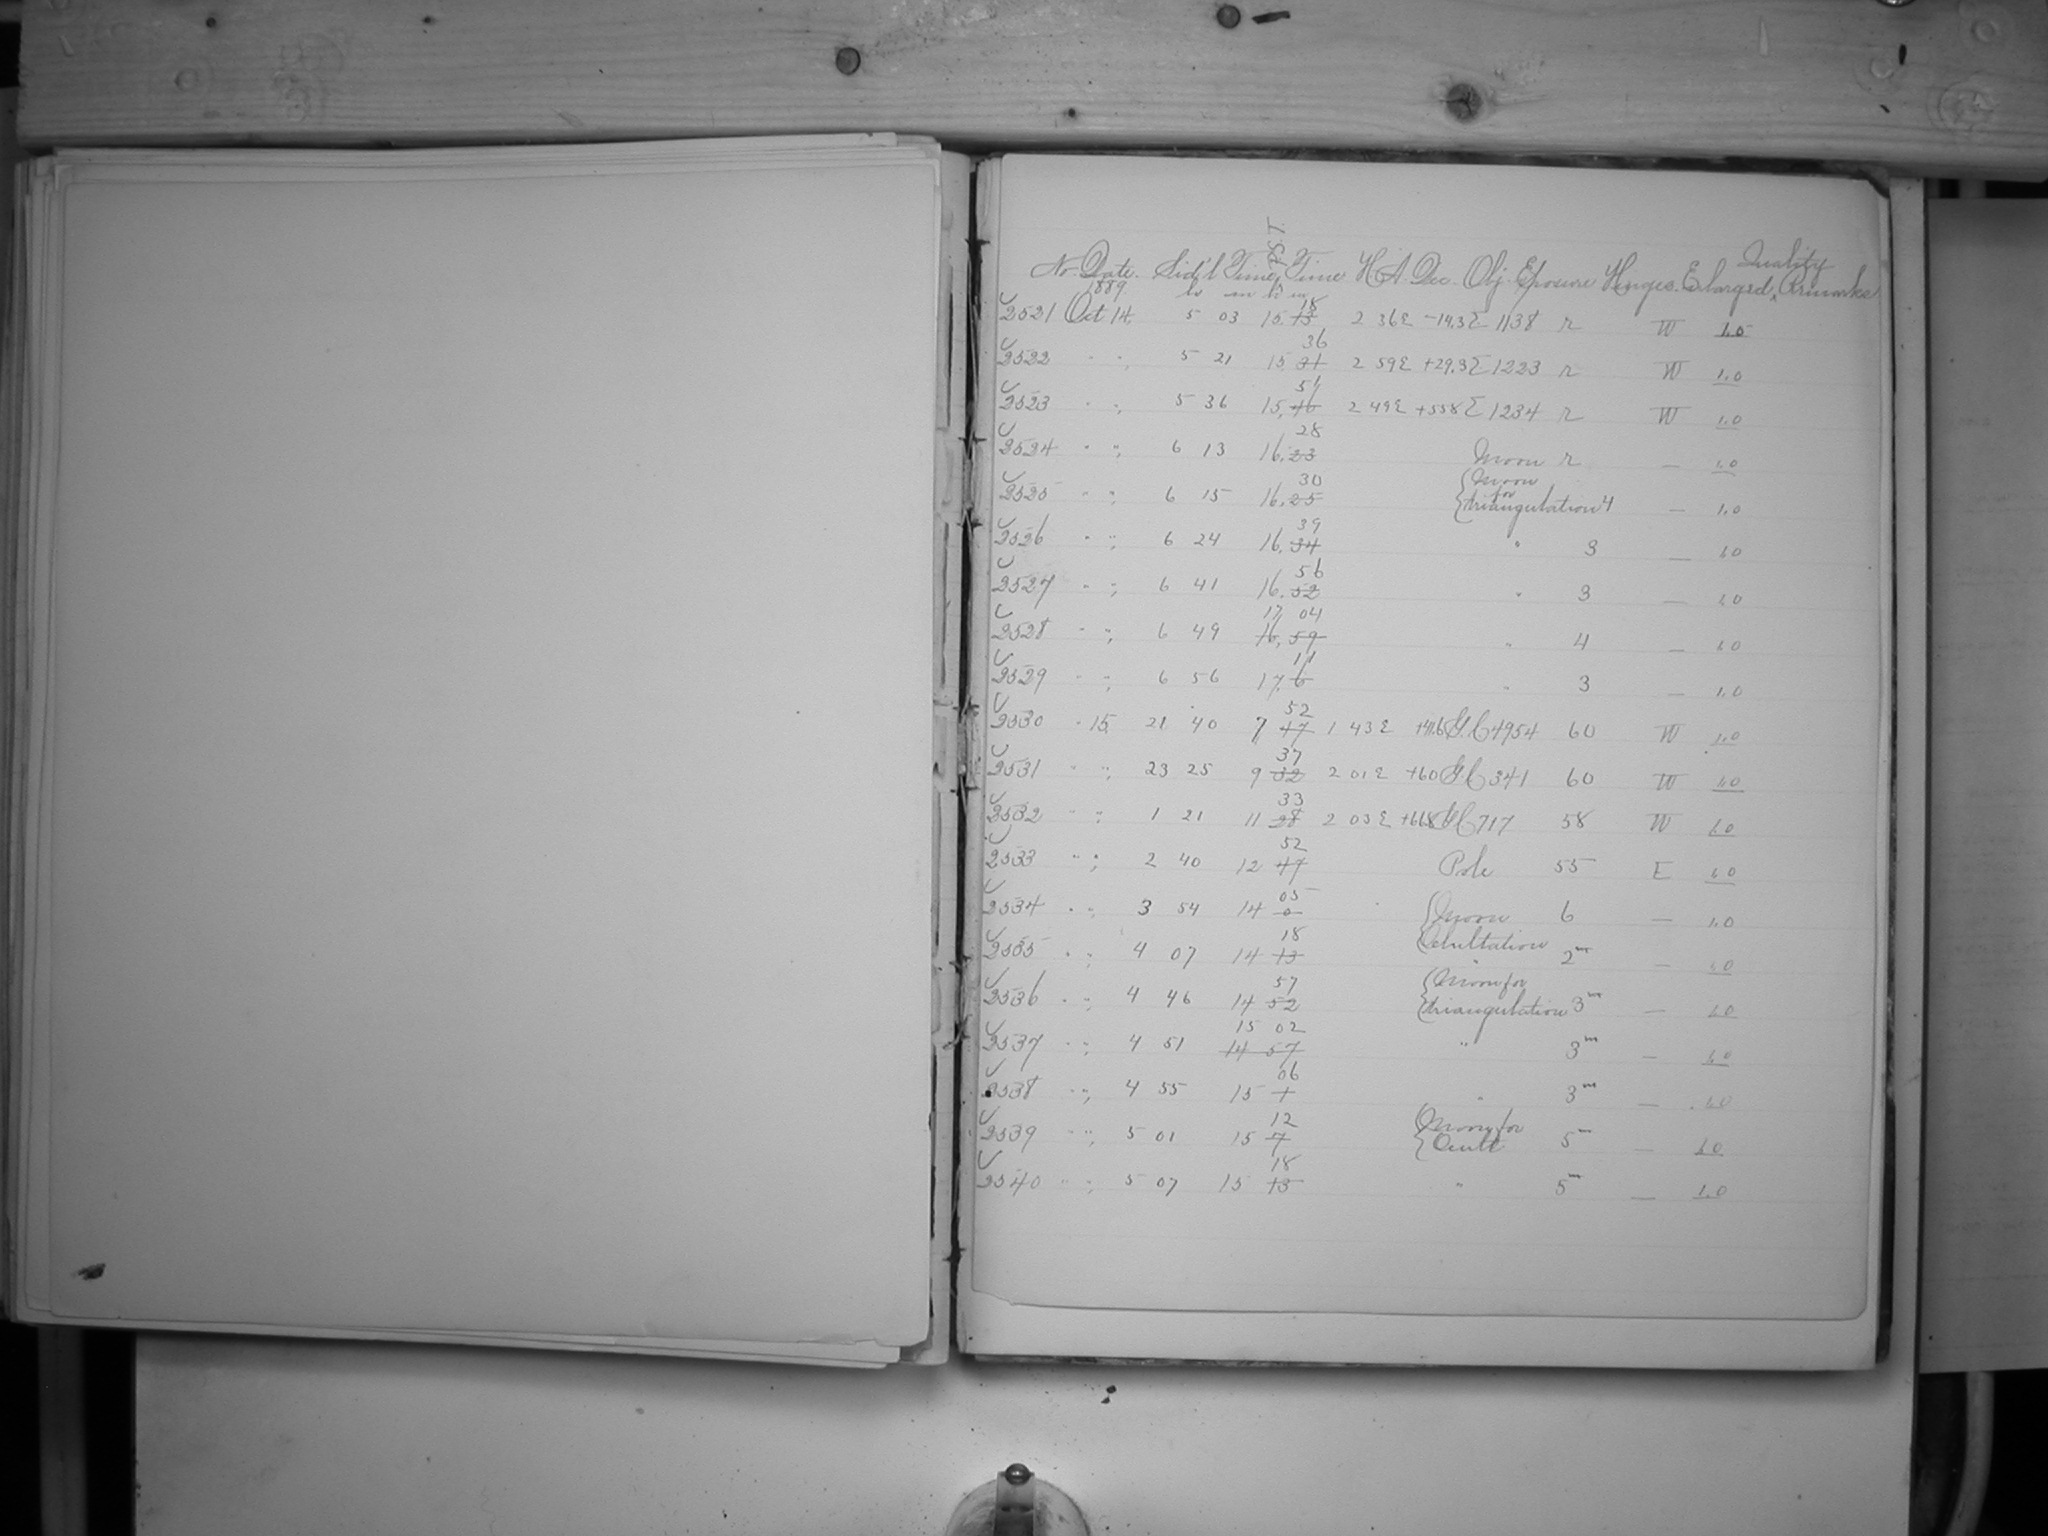 L.S.P.
Quality
No. Date. Sid'l Time, Time H.A. Dec. Obj. Eposure Hinges. Enlarged, Remarks
1889 h m h m
18
2521 Oct 14, 5 03 15.13 2 36E -19.3 Σ 1138 r W 1.0
36
2522 " ", 5 21 15.31 2 59E +29.3 Σ 1223 r W 1.0
51
2523 " ", 5 36 15.46 2 49E +55.8 Σ 1234 r W 1.0
28
2524 " ", 6 13 16.23 Moon r — 1.0
30 Moon
2525 " ", 6 15 16.25 for triangulation 4 — 1.0
39
2526 " ", 6 24 16.34 " 3 — 1.0
56
2527 " ", 6 41 16.52 " 3 — 1.0
17, 04
2528 " ", 6 49 16.59 " 4 — 1.0
11
2529 " ", 6 56 17.6 " 3 — 1.0
52
2530 " 15, 21 40 7 47 1 43E +41.6 G.C. 4954 60 W 1.0
37
2531 " ", 23 25 9 32 2 01E +60 G.C. 341 60 W 1.0
33
2532 " ", 1 21 11 28 2 03E +66.8 G.C. 717 58 W 1.0
52
2533 " ", 2 40 12 47 Pole 55 E 1.0
05
2534 " ", 3 54 14 0 Moon 6 — 1.0
18 Occultation
2535 " ", 4 07 14 13 " 2m — 1.0
57 Moon for
2536 " ", 4 46 14 52 triangulation 3m — 1.0
15 02
2537 " ", 4 51 14 57 " 3m — 1.0
06
2538 " ", 4 55 15 1 " 3m — 1.0
12 Moon for
2539 " ", 5 01 15 7 Occult 5m — 1.0
18
2540 " ", 5 07 15 13 " 5m — 1.0